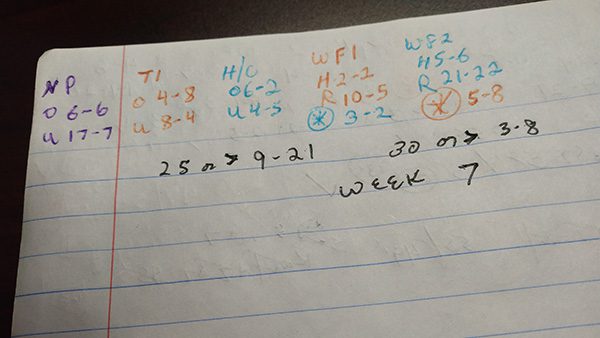 NP
O 6-6
U 17-7
T1
O 4-8
U 8-4
H/O
O 6-2
U 4-5
WF1
H 2-2
R 10-5
* 3-2
WF2
H 5-6
R 21-22
* 5-8
25 or > 9-21
30 or > 3-8
WEEK 7